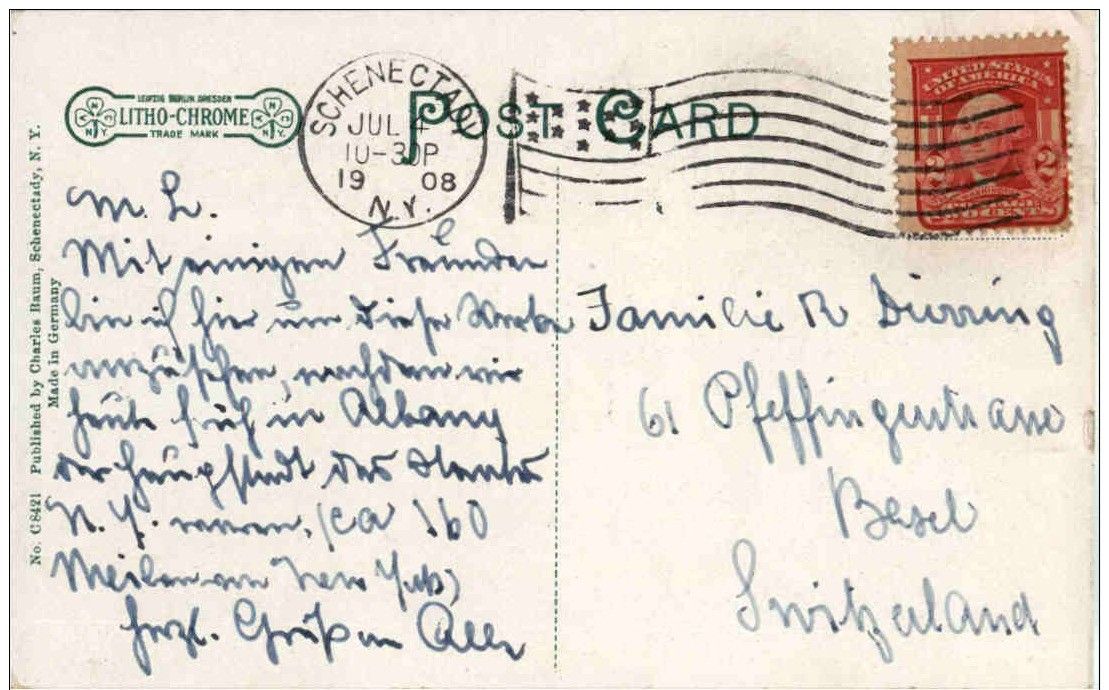 LEIPZIG BERLIN DRESDEN
LITHO-CHROME
TRADE MARK
N Y
N Y
POST CARD
SCHENECTADY
JUL 4
10-30P
19 08
N.Y.
UNITED STATES
OF AMERICA
2 2
No. C8421 Published by Charles Baum, Schenectady, N. Y.
Made in Germany
M. L.
Mit einigen Freunden
bin ich hier um diese Werke
anzusehen, nachdem wir
heute früh in Albany
der Hauptstadt des Staates
N. Y. waren. (ca 160
Meilen von New York)
herzl. Grüße an Alle
Familie R Dürring
61 Pfeffingerstrasse
Basel
Switzerland